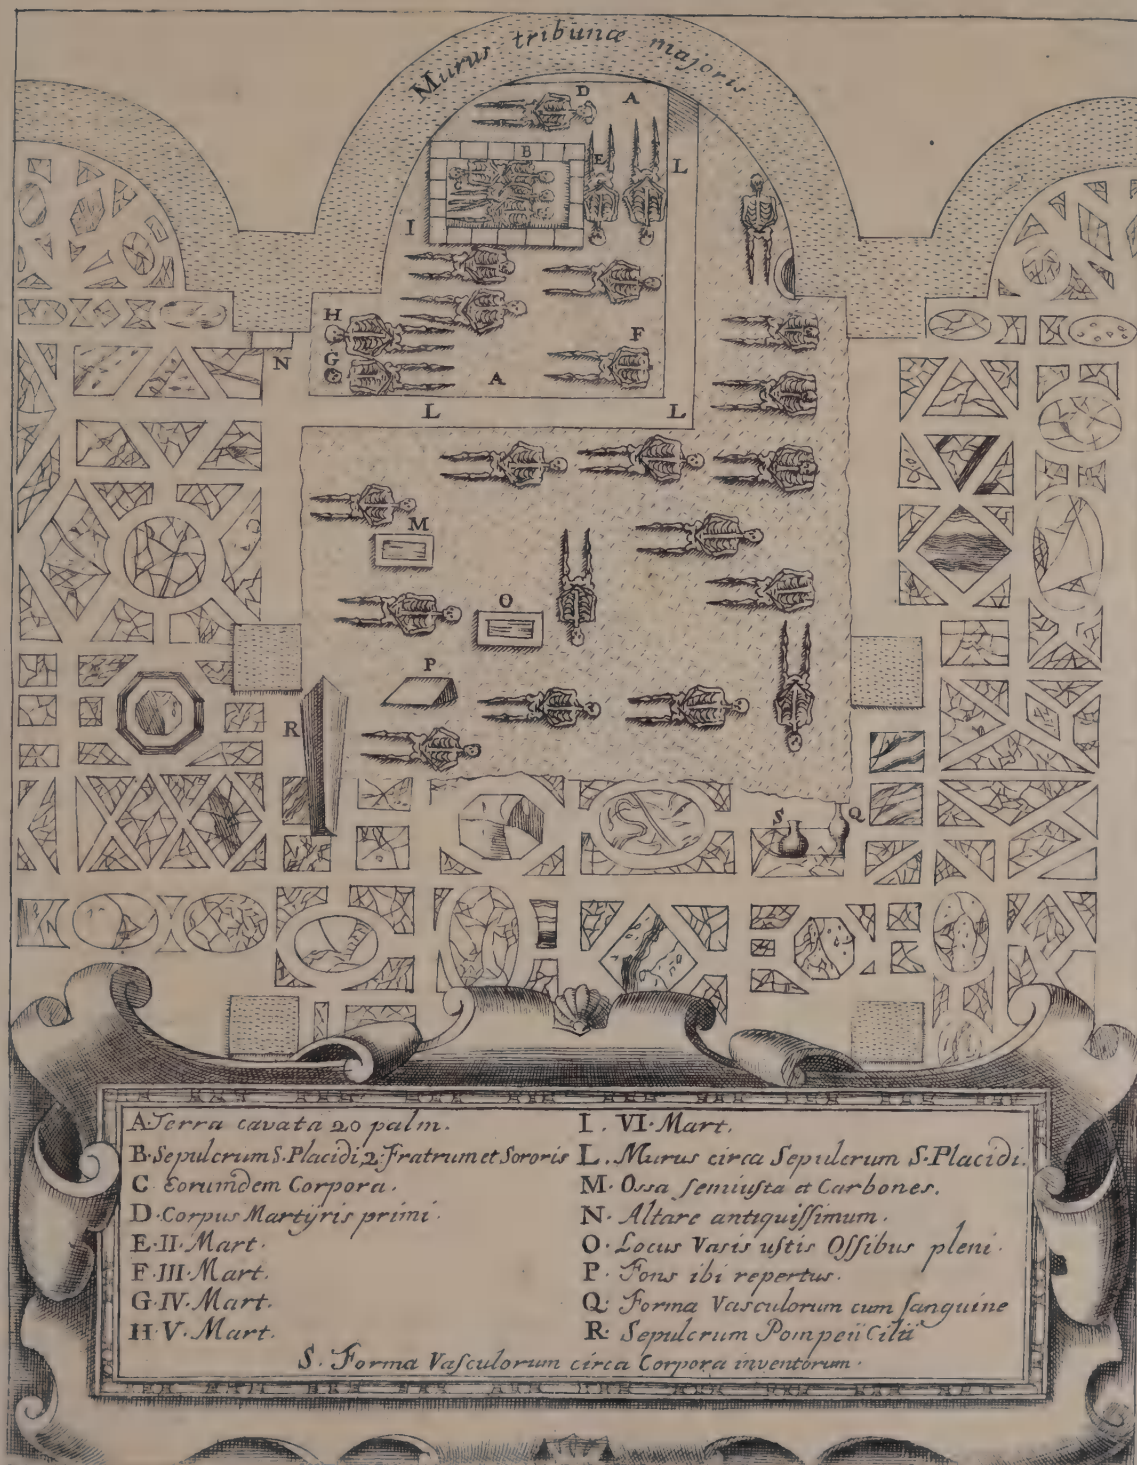 Murus tribunæ majoris
D A
B E
L
I
H F
N G
A
L L
M
O
P
R
S Q
A. Terra cavata 20 palm.
B. Sepulcrum S. Placidi, 2. Fratrum et Sororis
C. Eorumdem Corpora.
D. Corpus Martÿris primi.
E. II. Mart.
F. III. Mart.
G. IV. Mart.
H. V. Mart.
I. VI. Mart.
L. Murus circa Sepulcrum S. Placidi.
M. Ossa ſemiuſta et Carbones.
N. Altare antiquiſſimum.
O. Locus Vasis uſtis Oſſibus pleni.
P. Fons ibi repertus.
Q. Forma Vasculorum cum ſanguine
R. Sepulcrum Pompeii Cilii
S. Forma Vaſculorum circa Corpora inventorum.